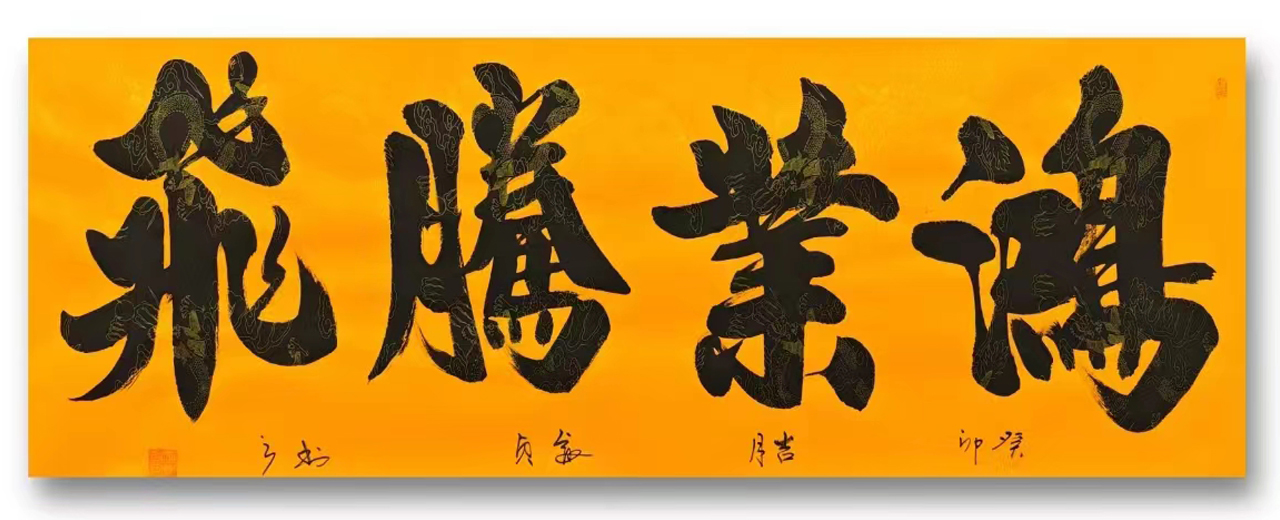 鴻業騰飛
癸卯吉月敏貞